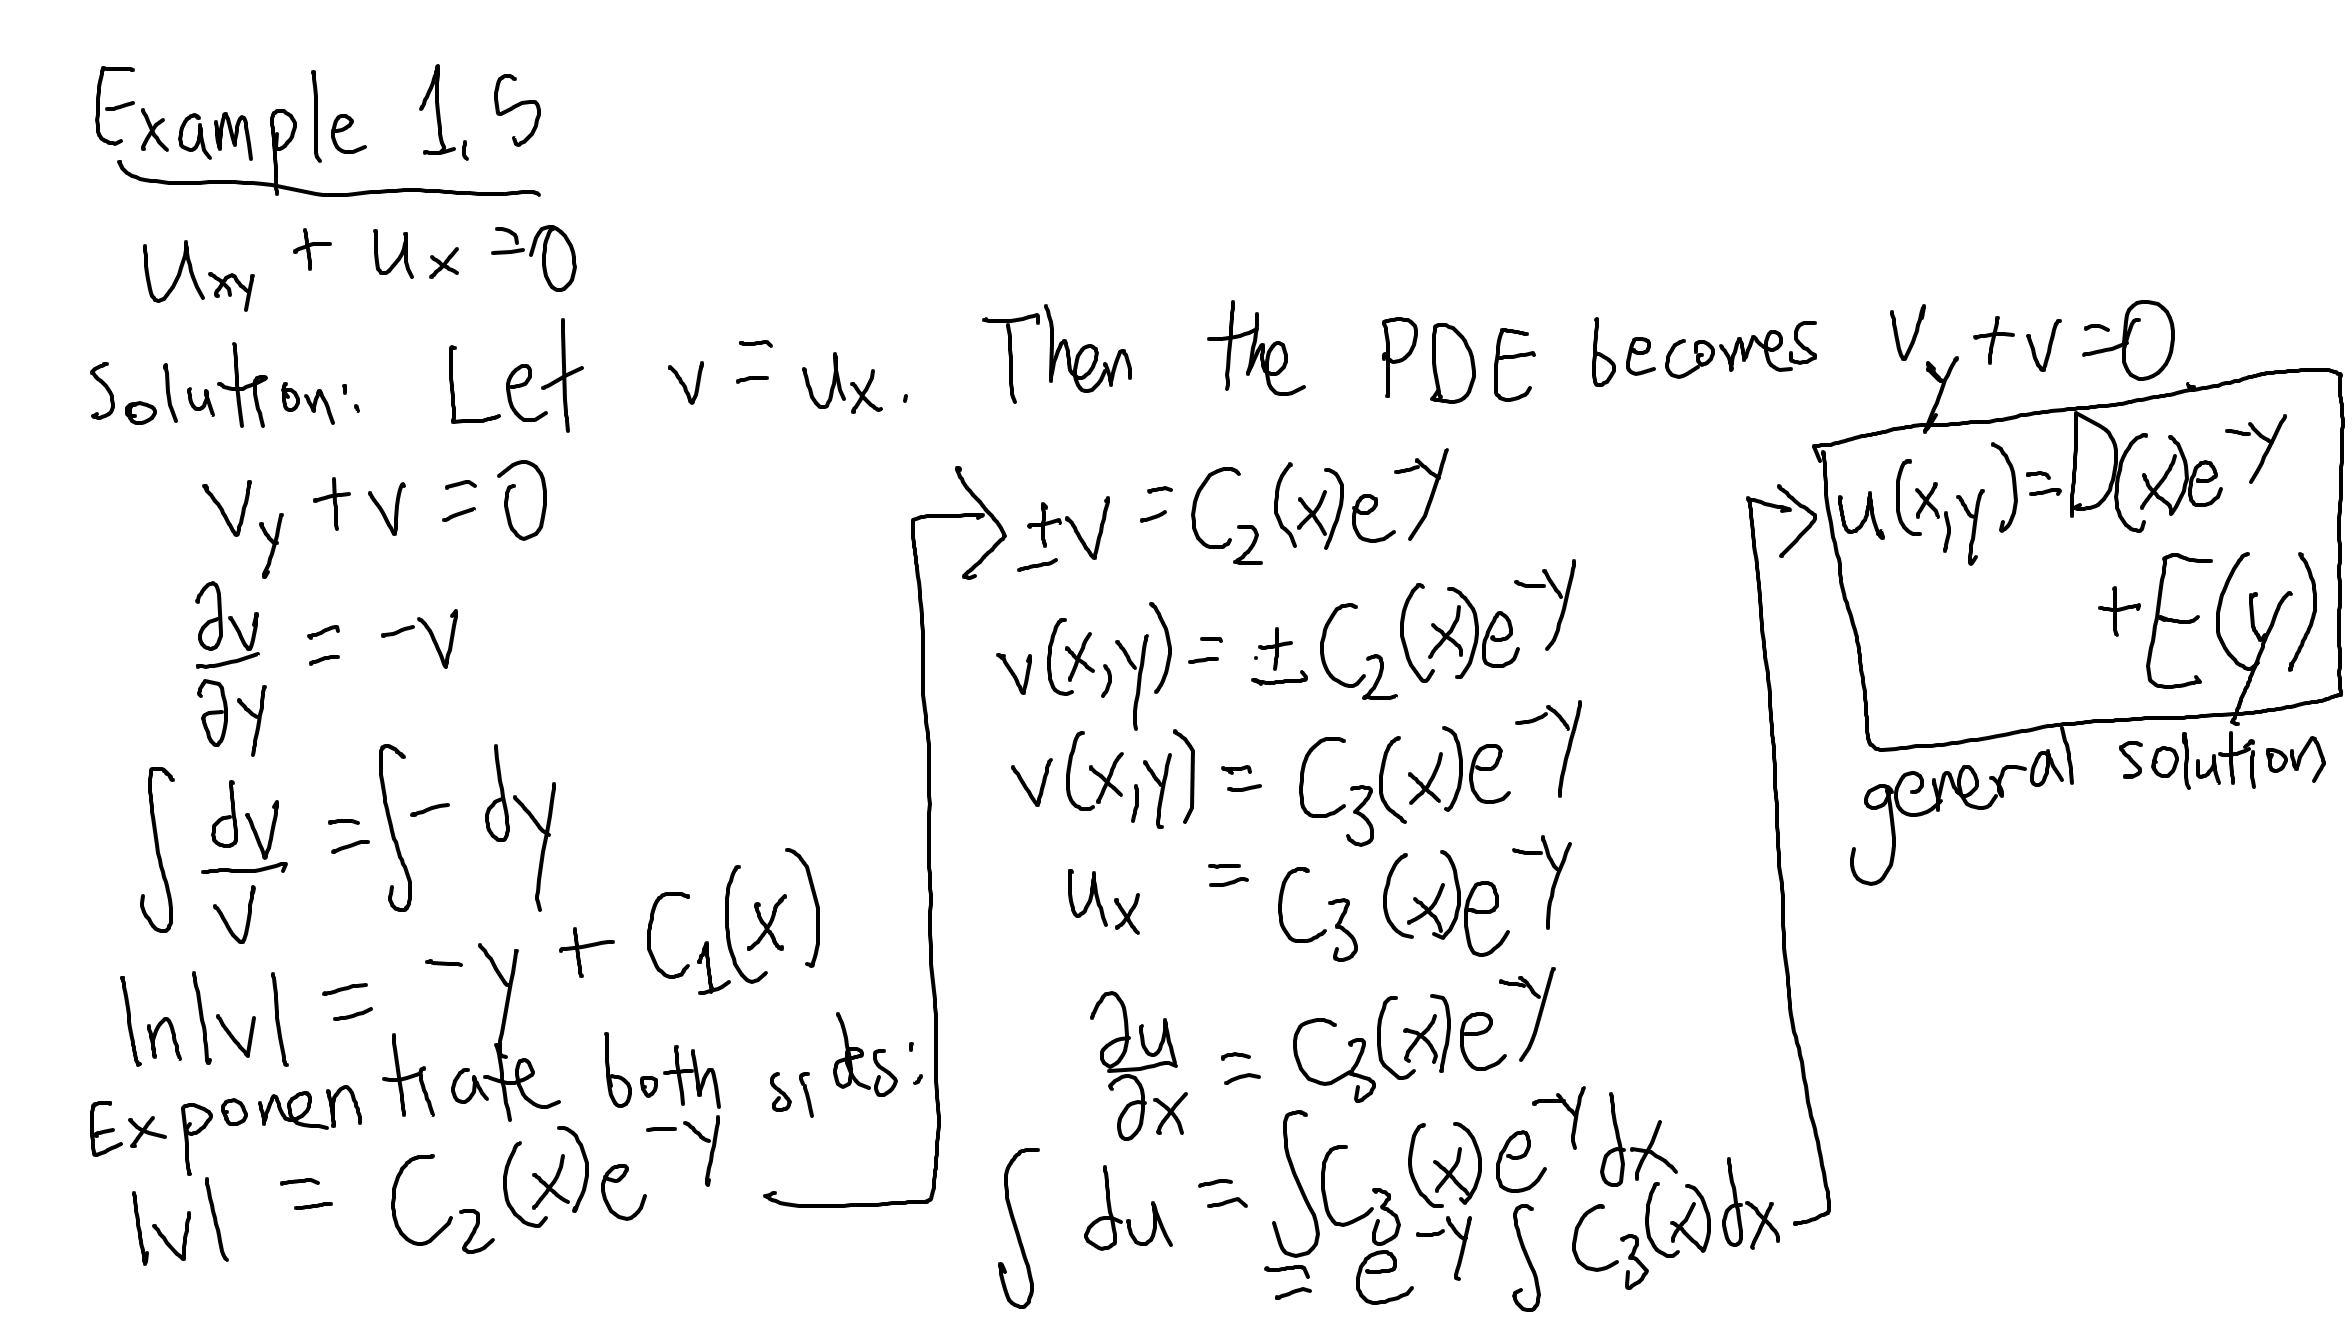 Example 1.5
u_{xy} + u_x = 0
Solution: Let v = u_x. Then the PDE becomes v_y + v = 0.
v_y + v = 0
∂v/∂y = -v
∫ dv/v = ∫ - dy
ln|v| = -y + C_1(x)
Exponentiate both sides:
|v| = C_2(x)e^{-y}
±v = C_2(x)e^{-y}
v(x,y) = ±C_2(x)e^{-y}
v(x,y) = C_3(x)e^{-y}
u_x = C_3(x)e^{-y}
∂u/∂x = C_3(x)e^{-y}
∫ du = ∫ C_3(x)e^{-y}dx
= e^{-y} ∫ C_3(x)dx
u(x,y) = D(x)e^{-y}
+ E(y)
general solution